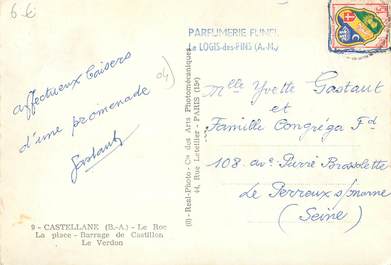 6-E
PARFUMERIE FUNEL
Le LOGIS-des-PINS (A.-M.)
affectueux baisers
d'une promenade
Gastaut
04
Mlle Yvette Gastaut
et
Famille Congréga Fd
108 ave Pierre Brossolette
Le Perreux s/marne
(Seine)
(6) - Real-Photo - Cie des Arts Photomécaniques
44, Rue Letellier - PARIS (15e)
9 - CASTELLANE (B.-A.) - Le Roc
La place - Barrage de Castillon
Le Verdon